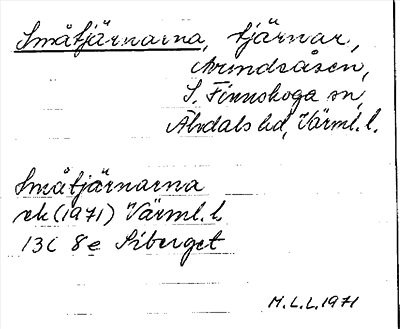 Småtjärnarna, tjärnar,
Avundsåsen,
S. Finnskoga sn,
Älvdals hd, Värml. l.
Småtjärnarna
ek (1971) Värml. l.
13C 8e Siberget
M.L.L. 1971